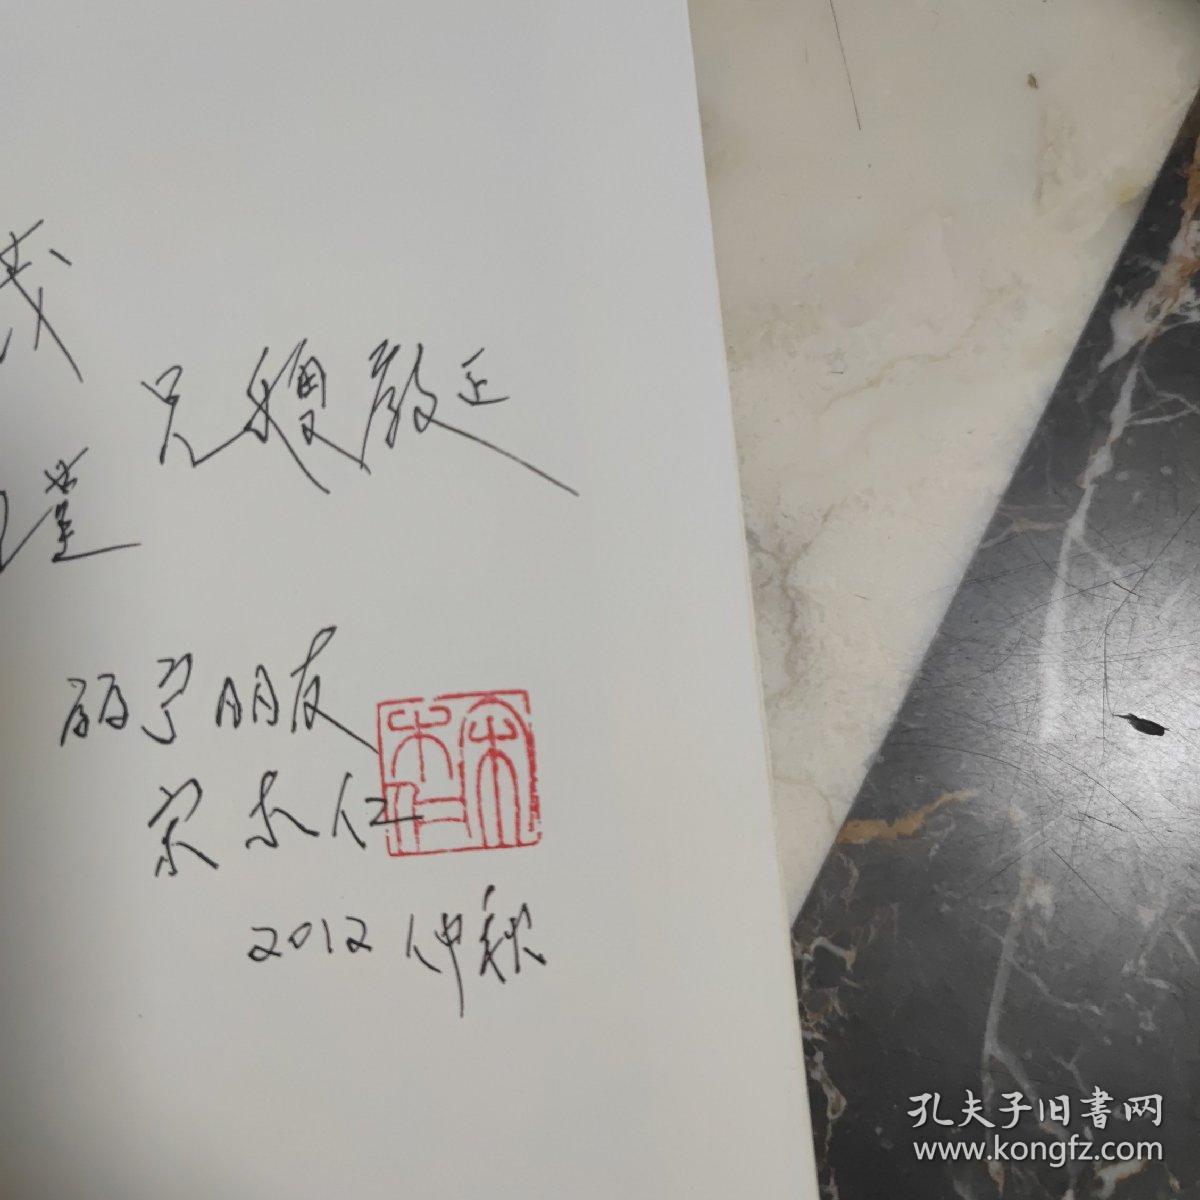 茂
兄嫂教正
瑾
朋友
宋木仁
2012 仲秋
孔夫子旧書网
www.kongfz.com